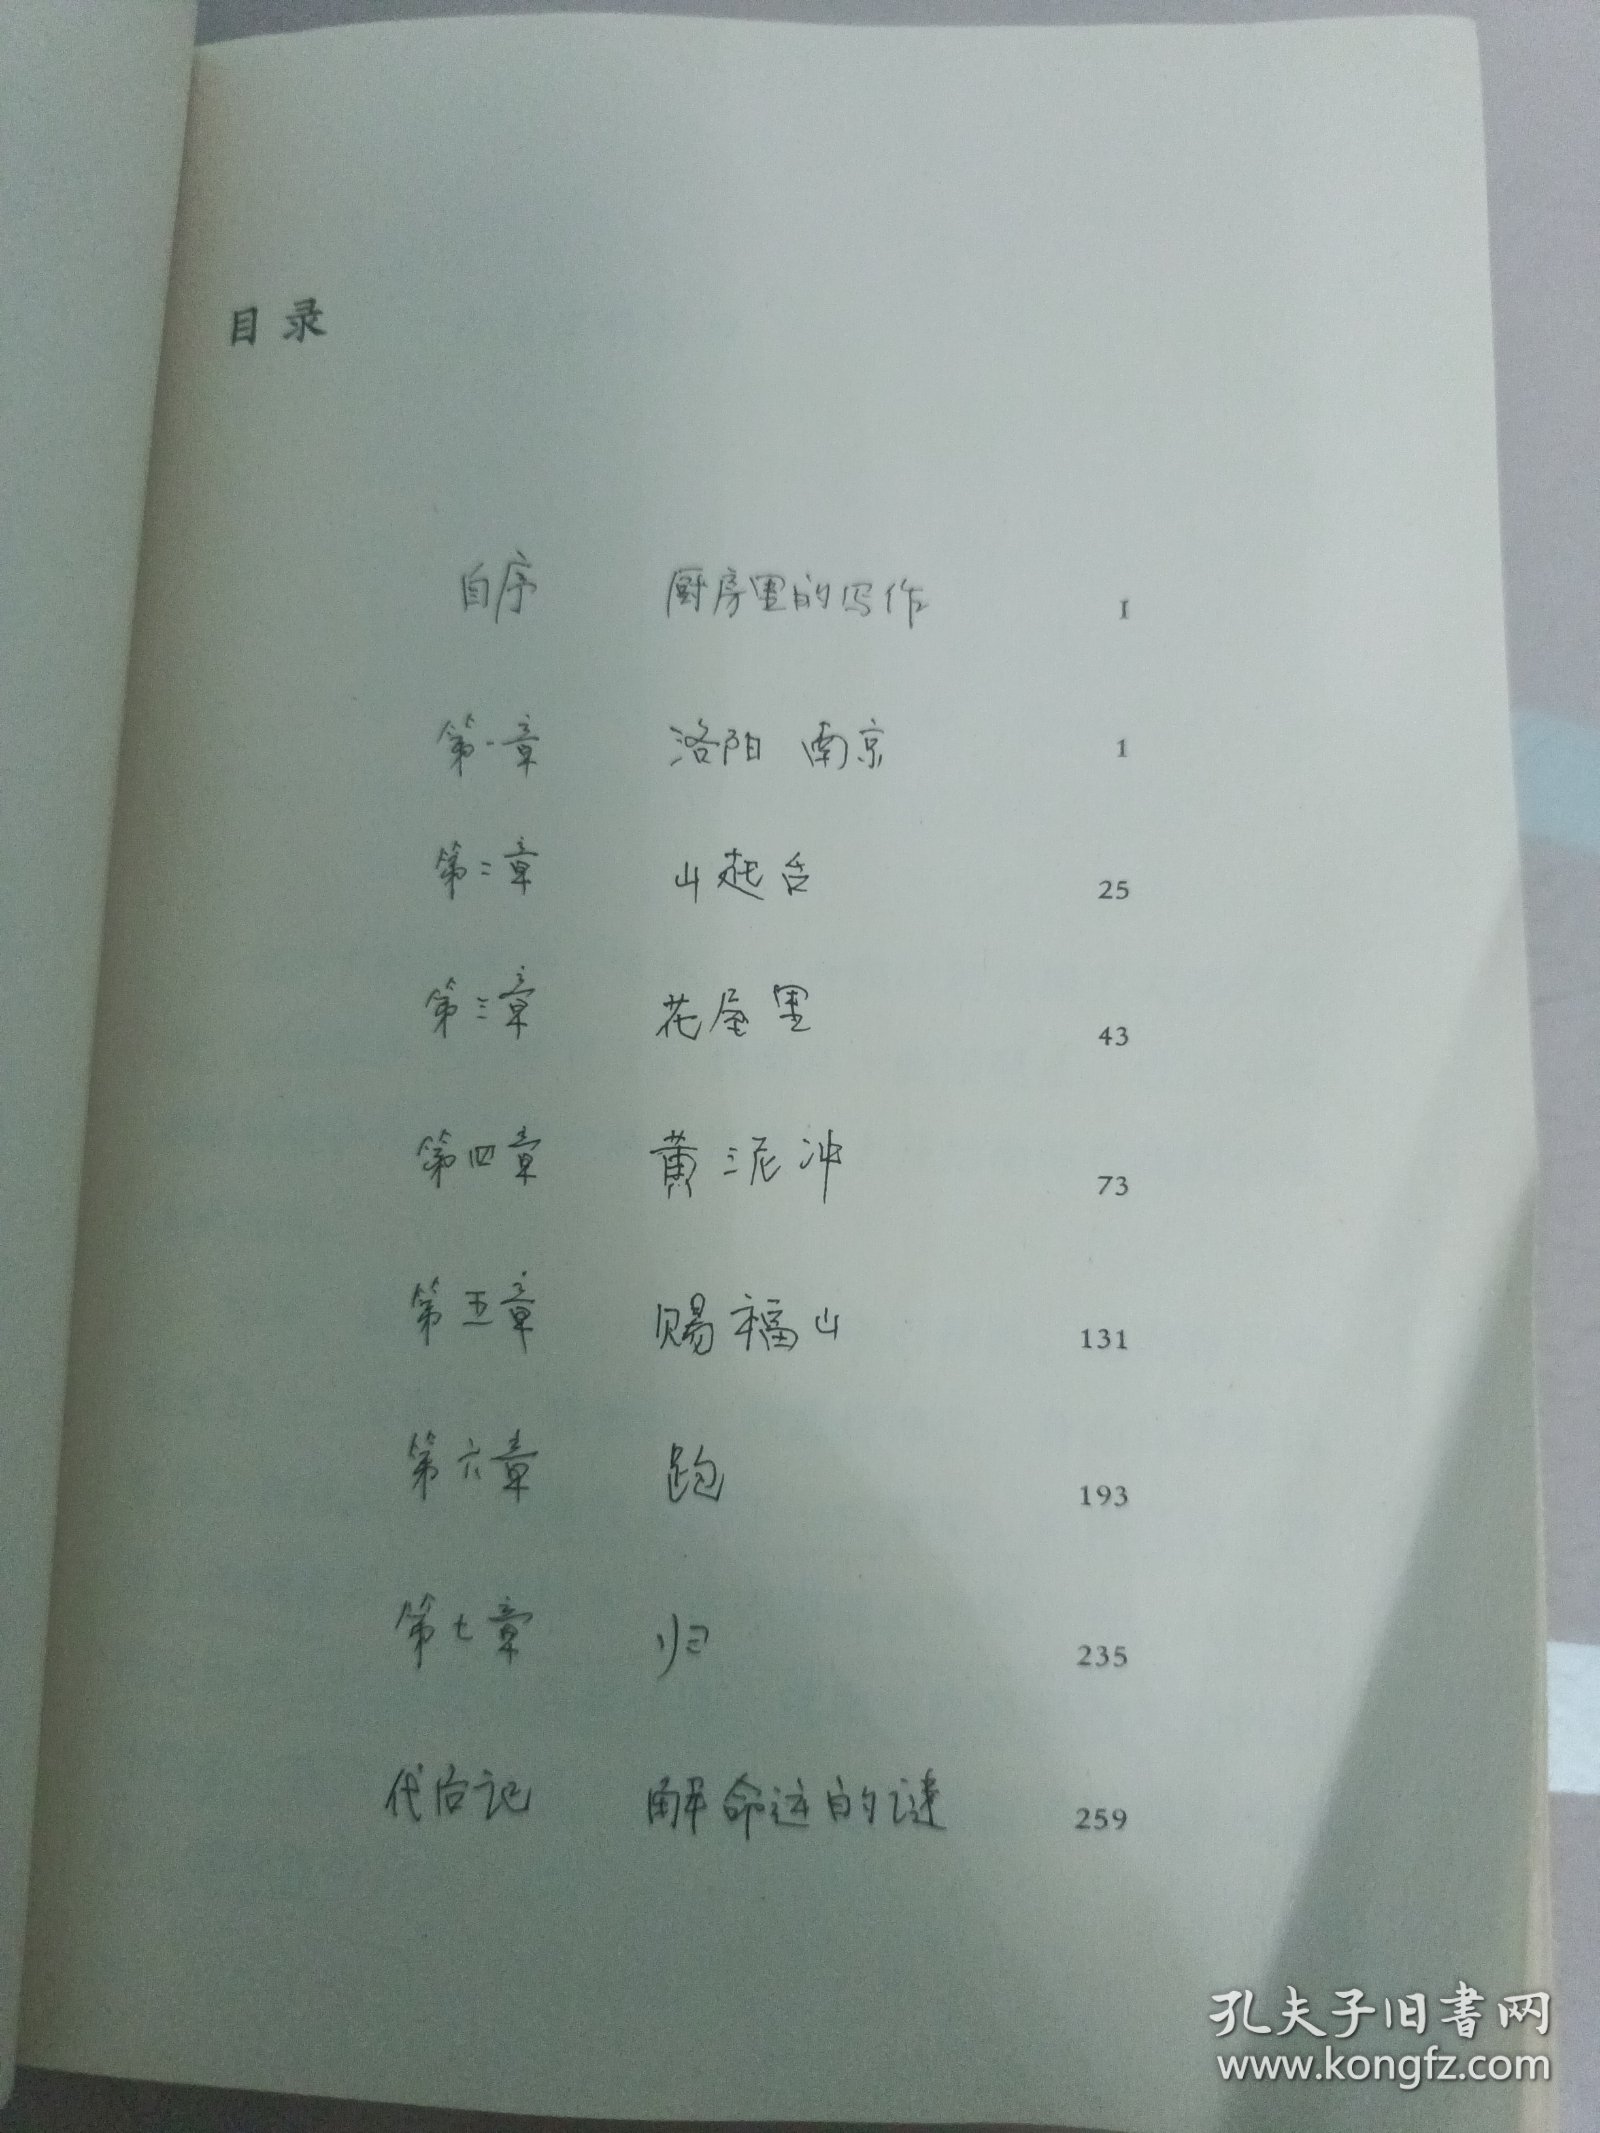 目录
自序 厨房里的写作 I
第一章 洛阳 南京 1
第二章 山起台 25
第三章 花屋里 43
第四章 黄泥冲 73
第五章 赐福山 131
第六章 跑 193
第七章 归 235
代后记 解命运的谜 259
孔夫子旧书网
www.kongfz.com